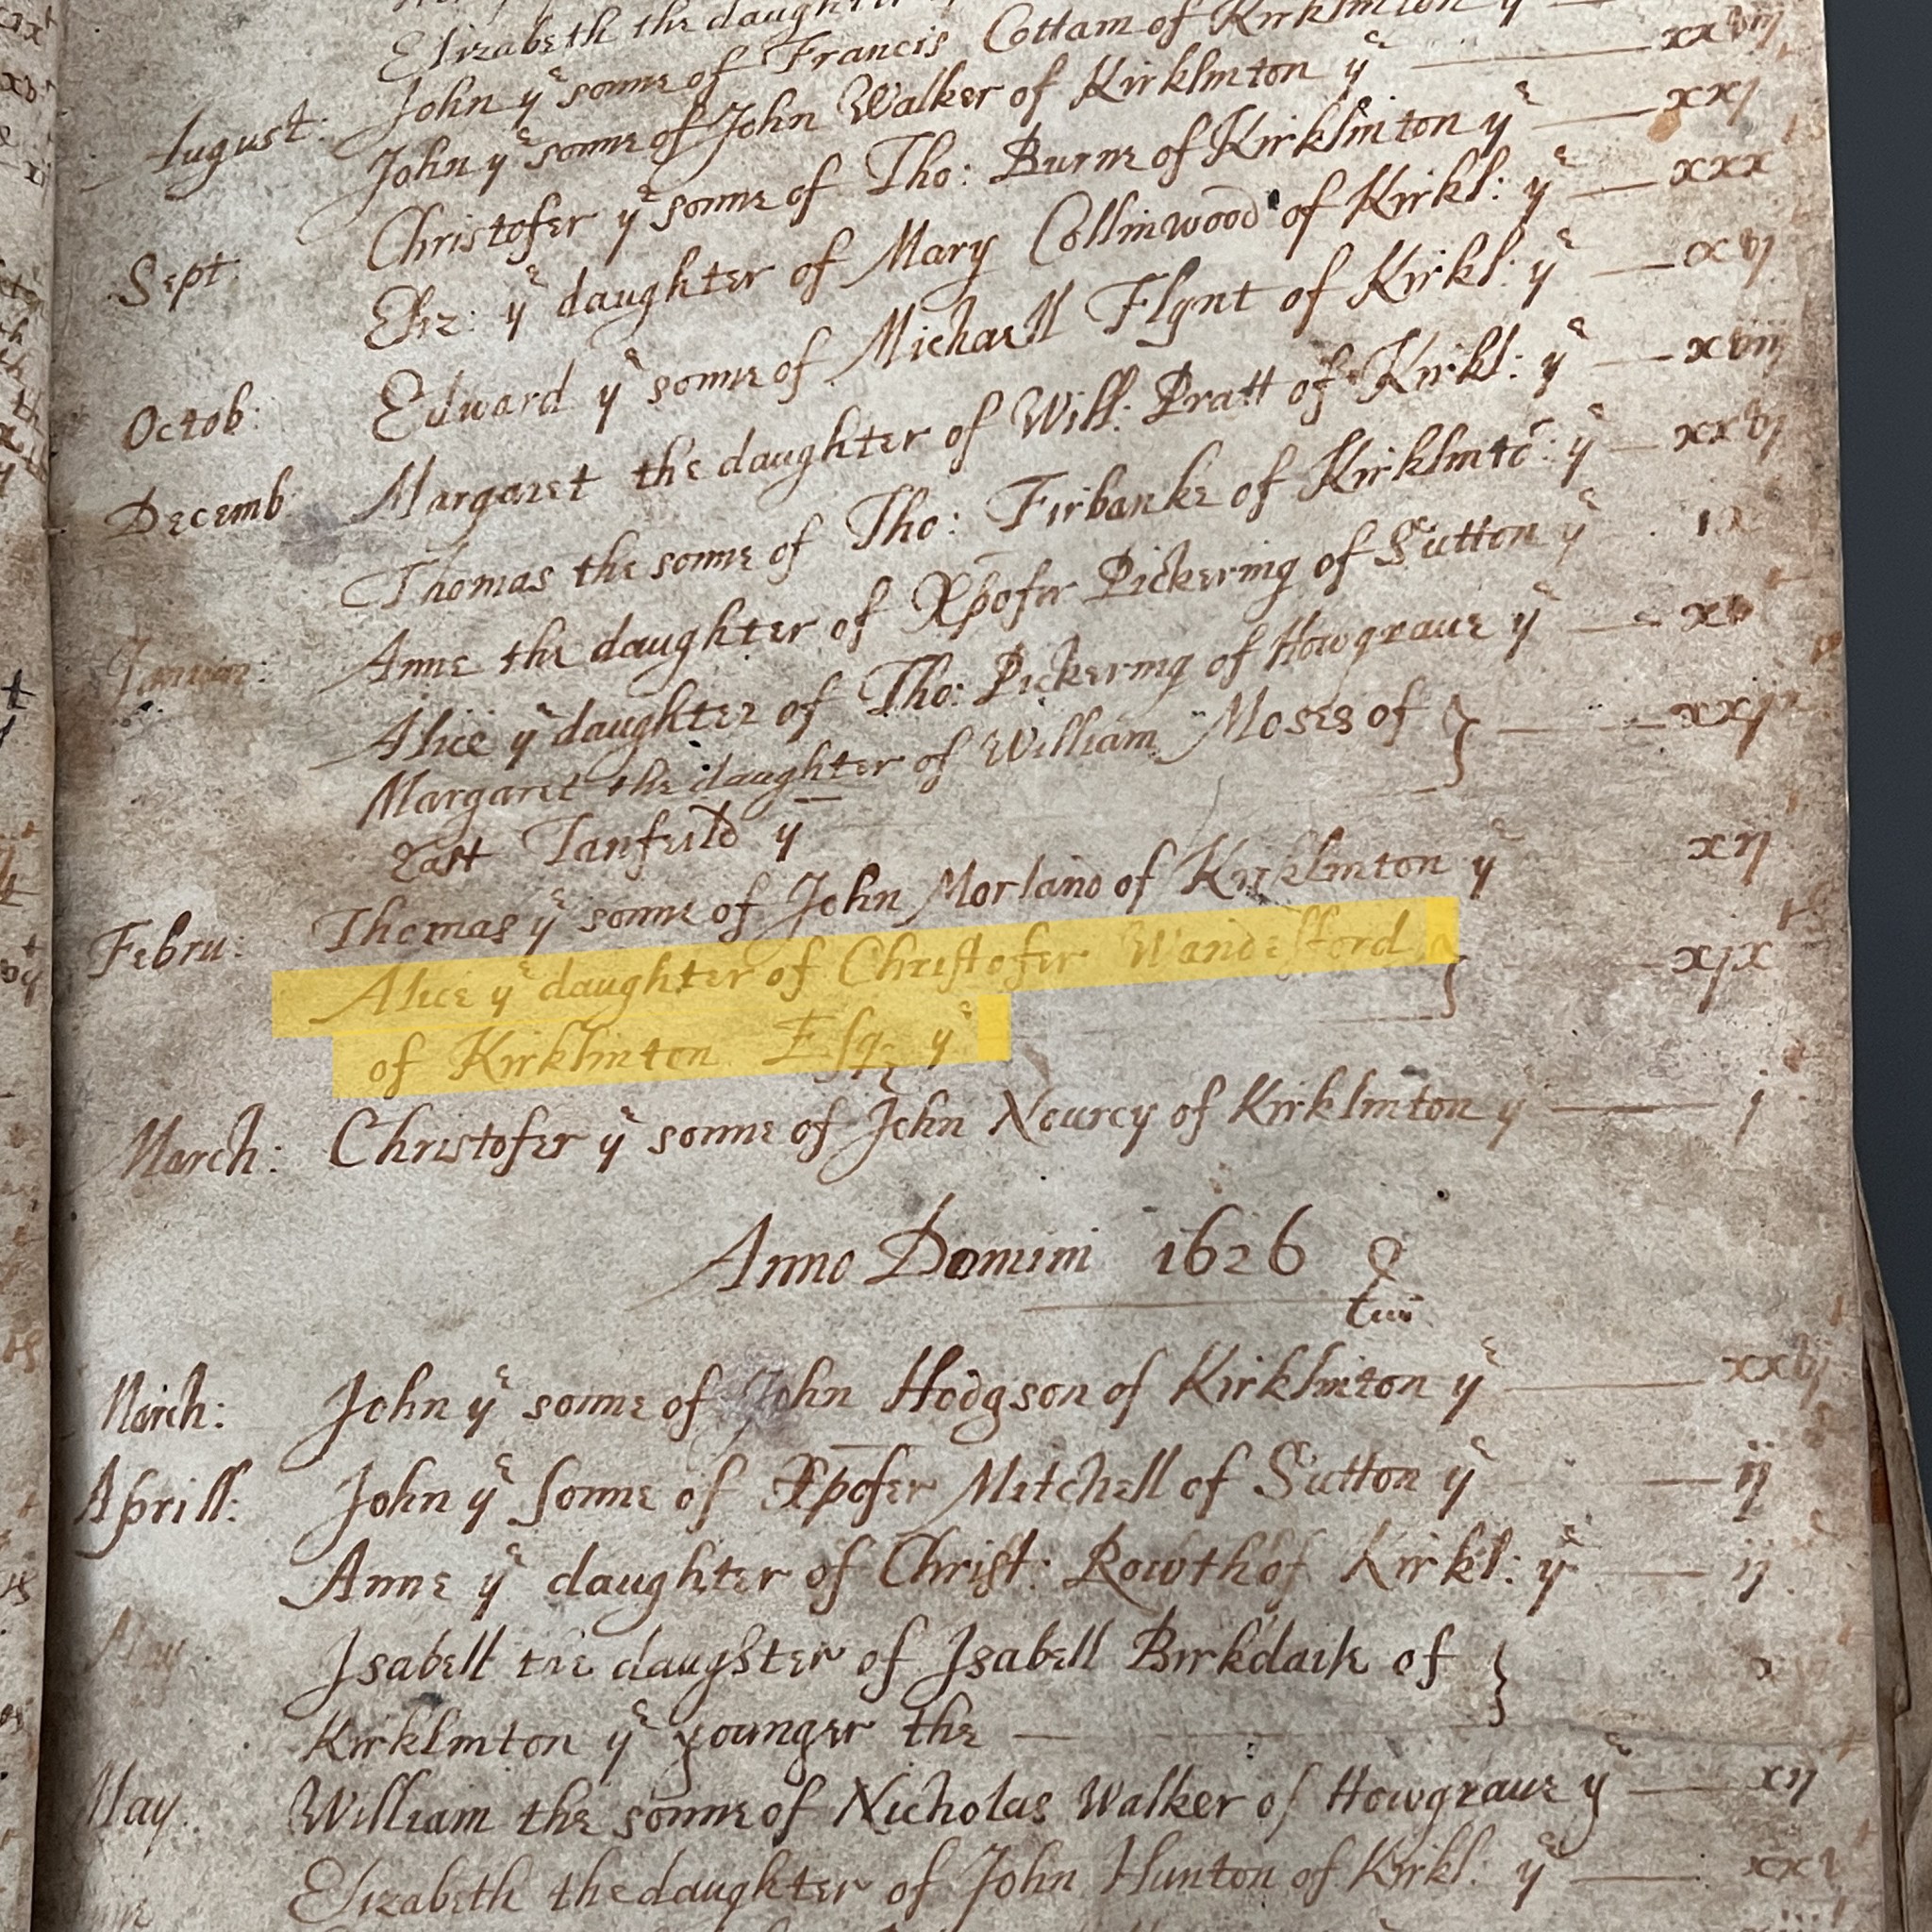 Elizabeth the daughter
John yᵉ sonne of Francis Cottam of Kirklinton yᵉ — xxviij
August: John yᵉ sonne of John Walker of Kirklinton yᵉ — xxj
Christofer yᵉ sonne of Tho: Burne of Kirklinton yᵉ — xxx
Sept: Eliz: yᵉ daughter of Mary Collinwood of Kirkl: yᵉ — xvj
Edward yᵉ sonne of Michaell Flynt of Kirkl: yᵉ — xviij
Octob: Margaret the daughter of Will: Pratt of Kirkl: yᵉ — xxvj
Decemb Thomas the sonne of Tho: Firbanke of Kirklintō: yᵉ ix
Anne the daughter of Xpofer Pickering of Sutton yᵉ — xv
Alice yᵉ daughter of Tho: Pickering of Howgraue yᵉ
Margaret the daughter of William Moses of } — xxj
East Tanfeild yᵉ
Febru: Thomas yᵉ sonne of John Morland of Kirklinton yᵉ xij
Alice yᵉ daughter of Christofer Wandesford } — xix
of Kirklinton Esqꝫ yᵉ
March: Christofer yᵉ sonne of John Nourcy of Kirklinton yᵉ — j
Anno Domini 1626
March: John yᵉ sonne of John Hodgson of Kirklinton yᵉ — xxvj
Aprill: John yᵉ sonne of Xpofer Mitchell of Sutton yᵉ — ij
Anne yᵉ daughter of Christ: Rowth of Kirkl: yᵉ — ij
May Isabell the daughter of Isabell Birkdaile of } x
Kirklinton yᵉ younger the —
May William the sonne of Nicholas Walker of Howgraue yᵉ — xij
Elizabeth the daughter of John Hunton of Kirkl: yᵉ —